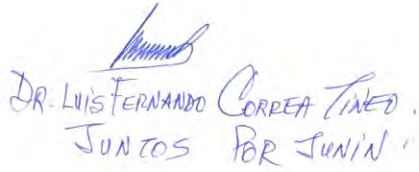 DR. LUIS FERNANDO CORREA TINEO.
JUNTOS POR JUNIN.